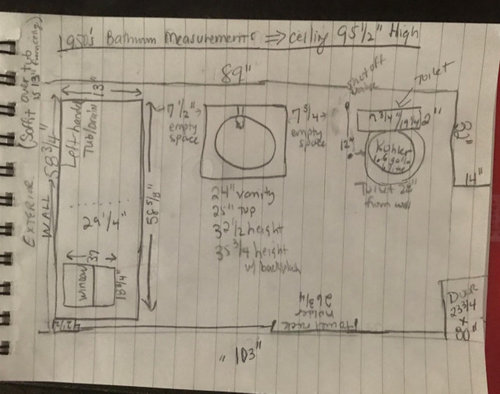 1980's Bathroom Measurements ⇒ Ceiling 95 1/2" High
(Soffit over tub
is 13" from ceiling)
89"
EXTERIOR
WALL
58 3/4"
13"
Left-handed
Tub/drain
29 1/4"
58 5/8"
window
37
18 3/4"
7 1/2"
empty
space
24" vanity
25" top
32 1/2 height
35 3/4 height
w/ backsplash
7 3/4"
empty
space
shut off
valve
Toilet
12"
19 1/4"
2"
Kohler
1.6 gallon
Toilet 28"
from wall
32"
14"
DOOR
23 3/4
x
80"
towel
holder
26 3/4
103"